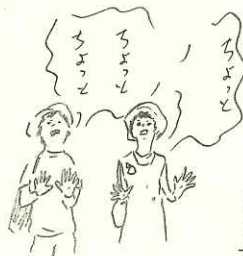 ちょっと
ちょっと
ちょっと